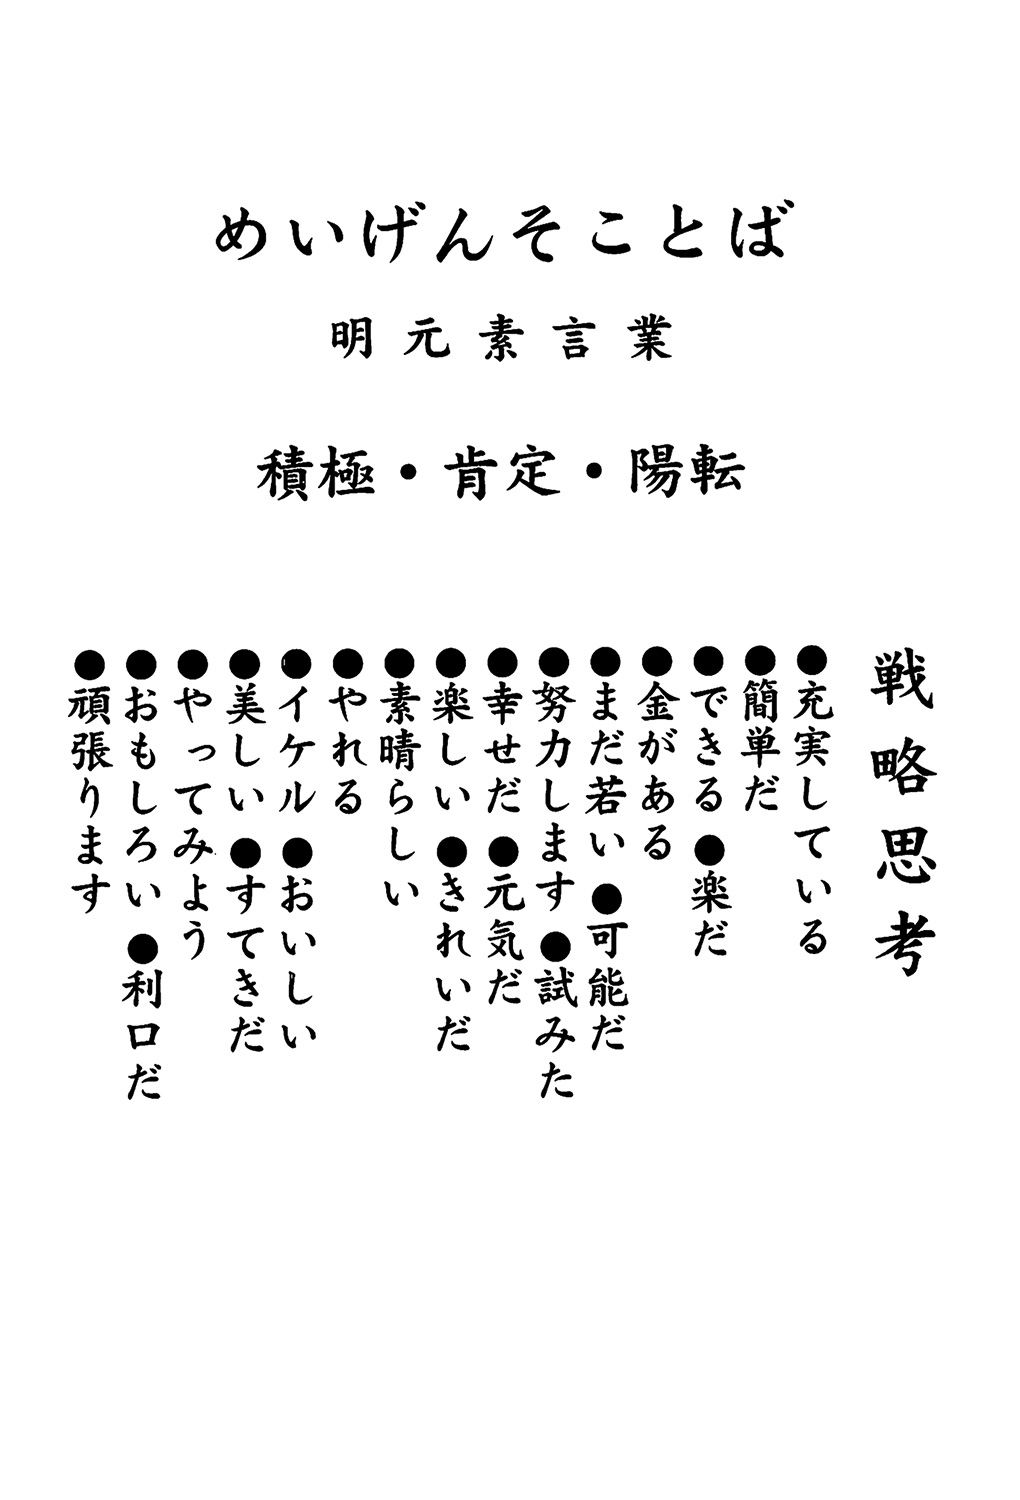 めいげんそことば
明元素言業
積極・肯定・陽転
戦略思考
●充実している
●簡単だ
●できる●楽だ
●金がある
●まだ若い●可能だ
●努力します●試みた
●幸せだ●元気だ
●楽しい●きれいだ
●素晴らしい
●やれる
●イケル●おいしい
●美しい●すてきだ
●やってみよう
●おもしろい●利口だ
●頑張ります